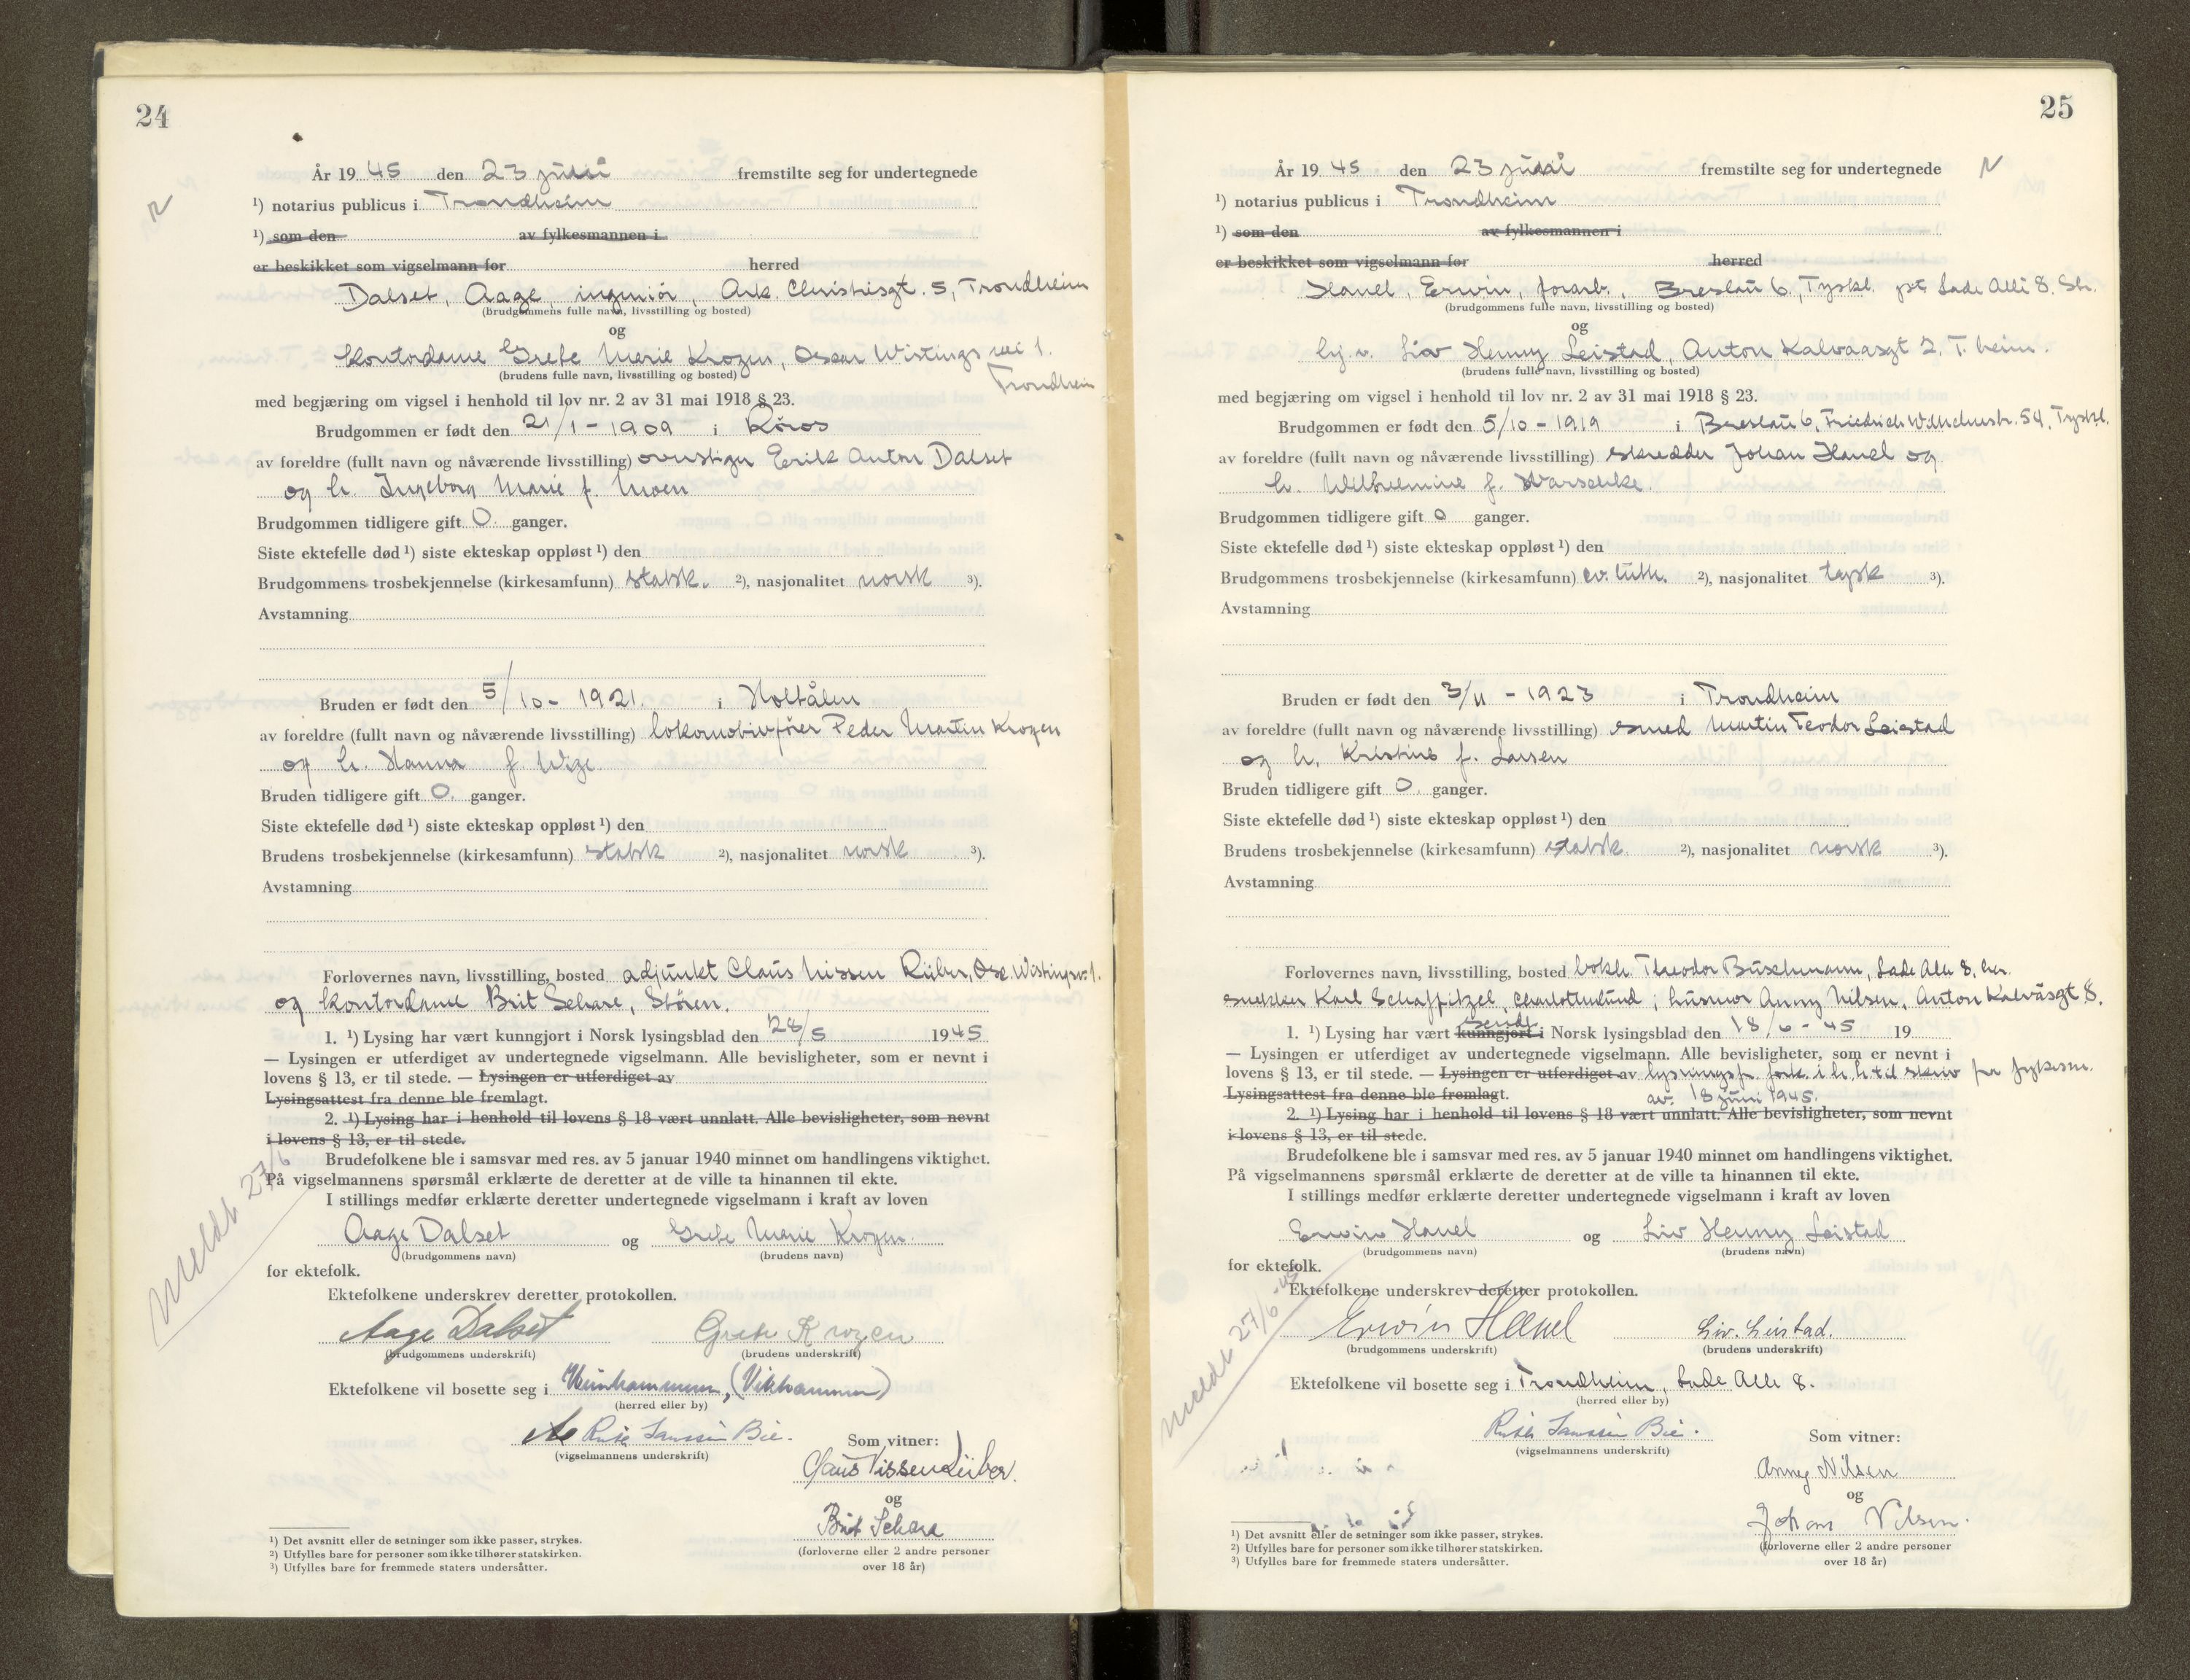 24
År 19 45 den 23 juni fremstilte seg for undertegnede
¹) notarius publicus i Trondheim
¹) som den av fylkesmannen i
er beskikket som vigselmann for herred
Dalset, Aage, ingeniør, Ark. Christiesgt. 5, Trondheim
(brudgommens fulle navn, livsstilling og bosted)
og
Kontordame Grete Marie Krogen, Oscar Wistings vei 1.
(brudens fulle navn, livsstilling og bosted) Trondheim
med begjæring om vigsel i henhold til lov nr. 2 av 31 mai 1918 § 23.
Brudgommen er født den 21/1 - 1909 i Röros
av foreldre (fullt navn og nåværende livsstilling) overstiger Erik Anton Dalset
og h. Ingeborg Marie f. Moen
Brudgommen tidligere gift 0. ganger.
Siste ektefelle død ¹) siste ekteskap oppløst ¹) den
Brudgommens trosbekjennelse (kirkesamfunn) statsk. ²), nasjonalitet norsk ³).
Avstamning
Bruden er født den 5/10 - 1921. i Holtålen
av foreldre (fullt navn og nåværende livsstilling) lokomotivfører Peder Martin Krogen
og h. Hanna f.
Bruden tidligere gift 0. ganger.
Siste ektefelle død ¹) siste ekteskap oppløst ¹) den
Brudens trosbekjennelse (kirkesamfunn) statsk ²), nasjonalitet norsk ³).
Avstamning
Forlovernes navn, livsstilling, bosted adjunkt Claus Nissen Riiber, Osc. Wistingsv. 1.
og kontordame Brit Schare, Støren.
1. ¹) Lysing har vært kunngjort i Norsk lysingsblad den 28/5 1945
— Lysingen er utferdiget av undertegnede vigselmann. Alle bevisligheter, som er nevnt i
lovens § 13, er til stede. — Lysingen er utferdiget av
Lysingsattest fra denne ble fremlagt.
2. ¹) Lysing har i henhold til lovens § 18 vært unnlatt. Alle bevisligheter, som nevnt
i lovens § 13, er til stede.
Brudefolkene ble i samsvar med res. av 5 januar 1940 minnet om handlingens viktighet.
På vigselmannens spørsmål erklærte de deretter at de ville ta hinannen til ekte.
I stillings medfør erklærte deretter undertegnede vigselmann i kraft av loven
Aage Dalset og Grete Marie Krogen.
(brudgommens navn) (brudens navn)
for ektefolk.
Meldt 27/6
Ektefolkene underskrev deretter protokollen.
Aage Dalset Grete Krogen
(brudgommens underskrift) (brudens underskrift)
Ektefolkene vil bosette seg i (Vikhammer)
(herred eller by)
Bie. Som vitner:
(vigselmannens underskrift)
Claus Nissen Riiber.
og
Brit Schare
(forloverne eller 2 andre personer
over 18 år)
¹) Det avsnitt eller de setninger som ikke passer, strykes.
²) Utfylles bare for personer som ikke tilhører statskirken.
³) Utfylles bare for fremmede staters undersåtter.
25
År 19 45 den 23 juni fremstilte seg for undertegnede
¹) notarius publicus i Trondheim
¹) som den av fylkesmannen i
er beskikket som vigselmann for herred
Hanel, Erwin, forarb., Breslau 6, Tyskl. pt. Lade Allé 8. Str.
(brudgommens fulle navn, livsstilling og bosted)
og
Liv Henny Leistad, Anton Kalvaasgt 2. T.heim.
(brudens fulle navn, livsstilling og bosted)
med begjæring om vigsel i henhold til lov nr. 2 av 31 mai 1918 § 23.
Brudgommen er født den 5/10 - 1919 i Breslau 6, Friedrich Wilhelmstr. 54, Tyskl.
av foreldre (fullt navn og nåværende livsstilling) skredder Johan Hanel og
h. Wilhelmine f. Warschke.
Brudgommen tidligere gift 0 ganger.
Siste ektefelle død ¹) siste ekteskap oppløst ¹) den
Brudgommens trosbekjennelse (kirkesamfunn) ev. luth. ²), nasjonalitet tysk ³).
Avstamning
Bruden er født den 3/11 - 1923 i Trondheim
av foreldre (fullt navn og nåværende livsstilling) smed Martin Teodor Leistad
og h. Kristine f. Larsen
Bruden tidligere gift 0. ganger.
Siste ektefelle død ¹) siste ekteskap oppløst ¹) den
Brudens trosbekjennelse (kirkesamfunn) statsk. ²), nasjonalitet norsk ³).
Avstamning
Forlovernes navn, livsstilling, bosted bokh. Theodor Buschmann, Lade Allé 8, her.
snekker Karl Schaffitzel, Charlottenlund; husmor Anny Nilsen, Anton Kalvåsgt 8.
1. ¹) Lysing har vært kunngjort sendt i Norsk lysingsblad den 18/6 - 45 19
— Lysingen er utferdiget av undertegnede vigselmann. Alle bevisligheter, som er nevnt i
lovens § 13, er til stede. — Lysingen er utferdiget av lysningsfr. fork. i h. h. til skriv fra fylkesm.
Lysingsattest fra denne ble fremlagt. av. 18 juni 1945.
2. ¹) Lysing har i henhold til lovens § 18 vært unnlatt. Alle bevisligheter, som nevnt
i lovens § 13, er til stede.
Brudefolkene ble i samsvar med res. av 5 januar 1940 minnet om handlingens viktighet.
På vigselmannens spørsmål erklærte de deretter at de ville ta hinannen til ekte.
I stillings medfør erklærte deretter undertegnede vigselmann i kraft av loven
Erwin Hanel og Liv Henny Leistad
(brudgommens navn) (brudens navn)
for ektefolk.
Meldt 27/6-45
Ektefolkene underskrev deretter protokollen.
Erwin Hanel Liv. Leistad.
(brudgommens underskrift) (brudens underskrift)
Ektefolkene vil bosette seg i Trondheim, Lade Allé 8.
(herred eller by)
Bie. Som vitner:
(vigselmannens underskrift)
Anny Nilsen
og
Johan Nilsen.
(forloverne eller 2 andre personer
over 18 år)
¹) Det avsnitt eller de setninger som ikke passer, strykes.
²) Utfylles bare for personer som ikke tilhører statskirken.
³) Utfylles bare for fremmede staters undersåtter.